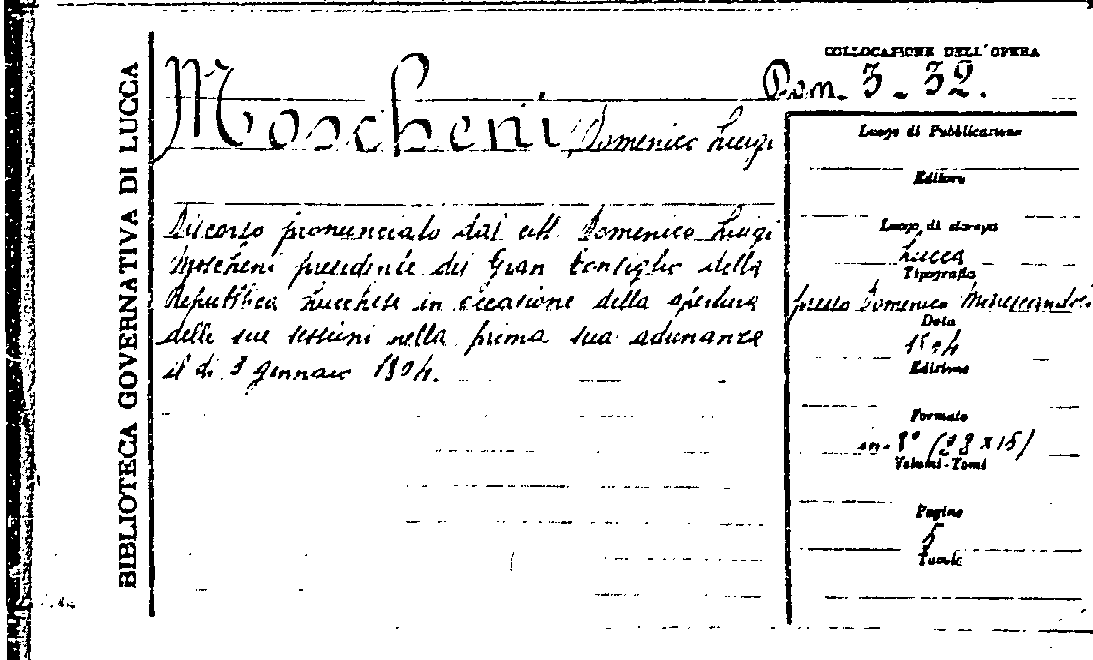 BIBLIOTECA GOVERNATIVA DI LUCCA
COLLOCAZIONE DELL'OPERA
3-32.
Moscheni Domenico Luigi
Discorso pronunciato dal citt. Domenico Luigi
Moscheni presidente del Gran Consiglio della
Repubblica Lucchese in occasione della apertura
delle sue sessioni nella prima sua adunanza
il dì 3 gennaio 1804.
Luogo di Pubblicazione
Editore
Luogo di stampa
Lucca
Tipografia
presso Domenico Marescandoli
Data
1804
Edizione
Formato
in-8° (23x15)
Volumi-Tomi
Pagine
5
Tavole